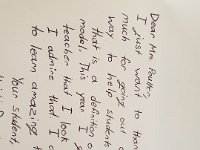 Dear Mrs. Poulter,
I just want to than
much for going out o
way to help students
that is a definition o
model. This year I g
teacher that I look
I admire that I c
to learn amazing t
Your student,